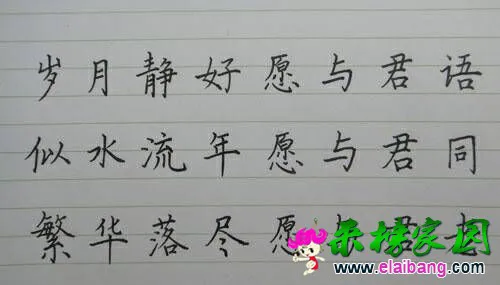 岁月静好愿与君语
似水流年愿与君同
繁华落尽愿与君老
采榜家园
www.elaibang.com